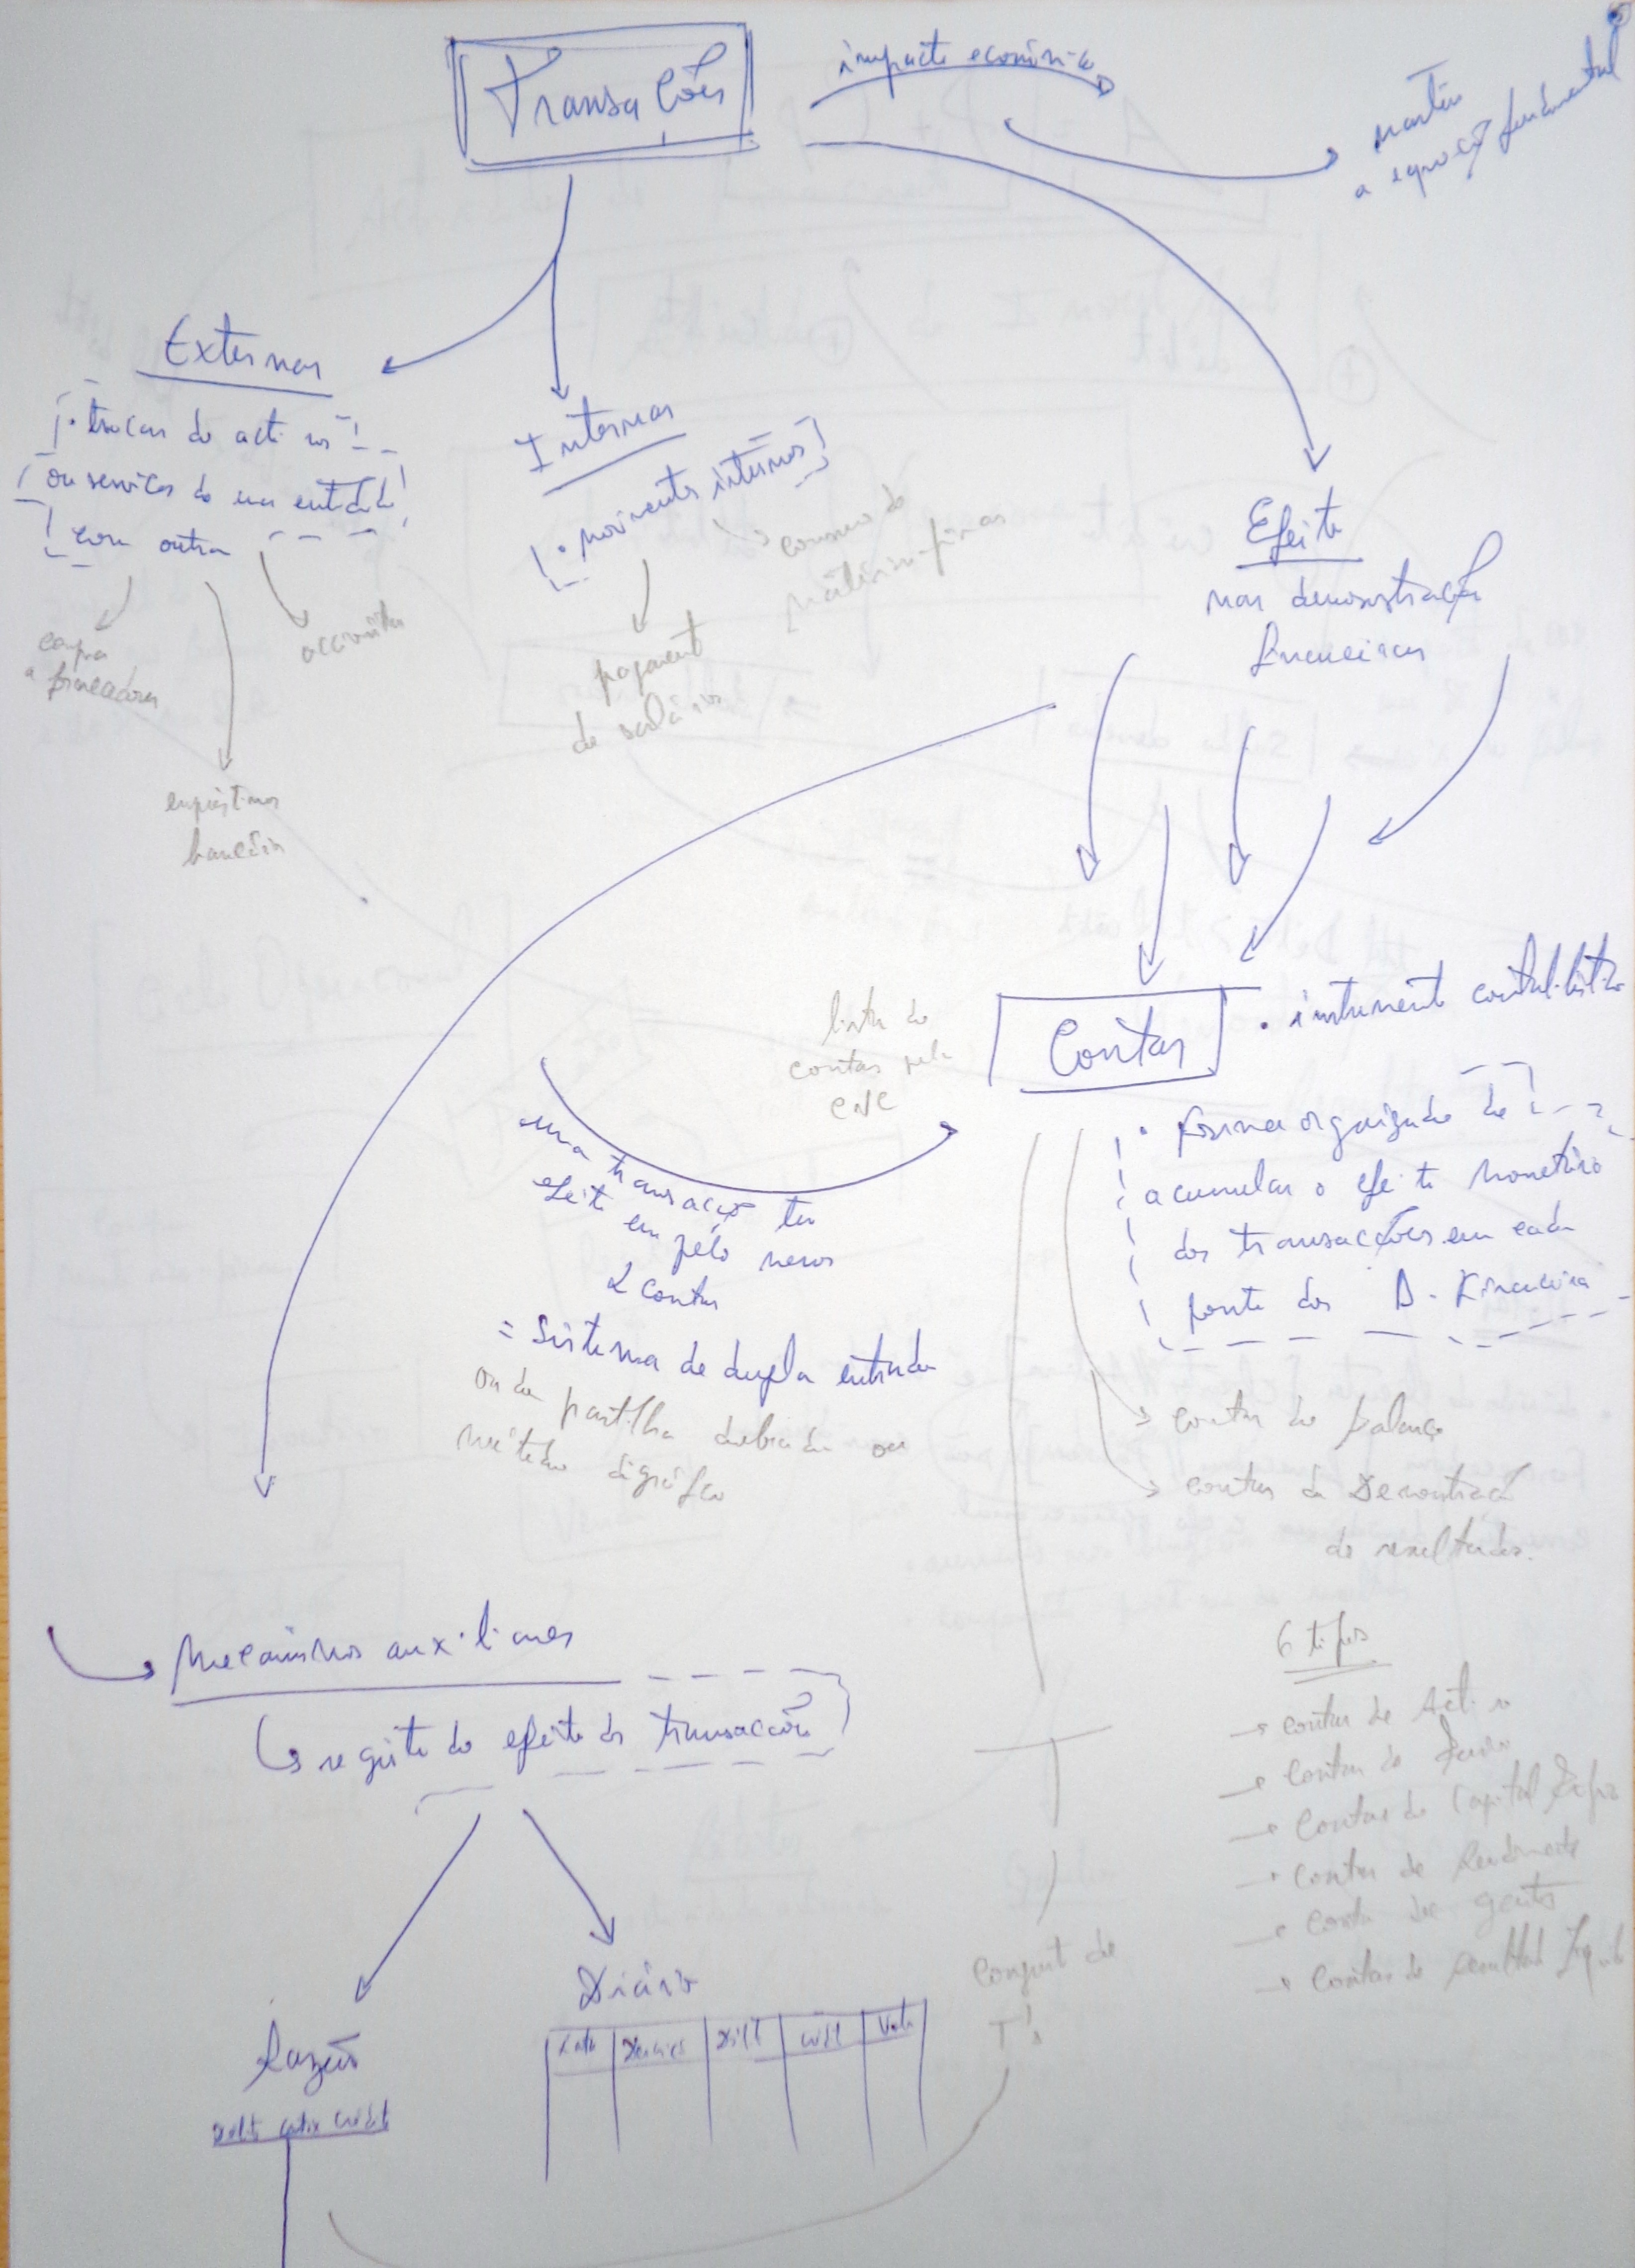 Transações
impacto económico
mantêm
a equação fundamental
Externas
• trocas de activos
ou serviços de uma entidade
com outra
compra
a fornecedores
empréstimos
bancário
accionistas
Internas
• movimentos internos
consumo de
matérias-primas
pagamento
de salários
Efeito
nas demonstrações
financeiras
lista de
contas pela
CNC
Contas
• instrumento contabilístico
• forma organizada de
acumular o efeito monetário
das transacções em cada
ponto das D. Financeira
contas de balanço
contas da Demonstração
de resultados.
uma transacção tem
efeito em pelo menos
2 contas
= Sistema de dupla entrada
ou de partilha dobrada ou
método digráfico
Mecanismos auxiliares
registo do efeito da transacção
6 tipos
→ contas de Activo
→ contas de Passivo
→ contas de Capital Próprio
→ contas de Rendimento
→ conta de gastos
→ contas de resultado líquido
conjunto de
T's
Razão
Débito Caixa Crédito
Diário
Data Descrição Débit Crédit Valor